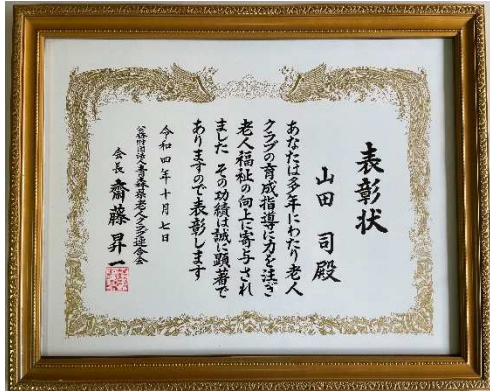 表彰状
山田 司殿
あなたは多年にわたり老人
クラブの育成指導に力を注ぎ
老人福祉の向上に寄与され
ました その功績は誠に顕著で
ありますので表彰します
令和四年十月七日
公益財団法人青森県老人クラブ連合会
会長 齋藤昇一